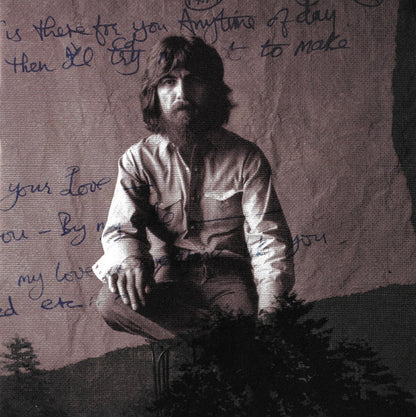 is there for you Anytime of day
then I'll try to make
your Love
ou - By my you -
my love
ed etc